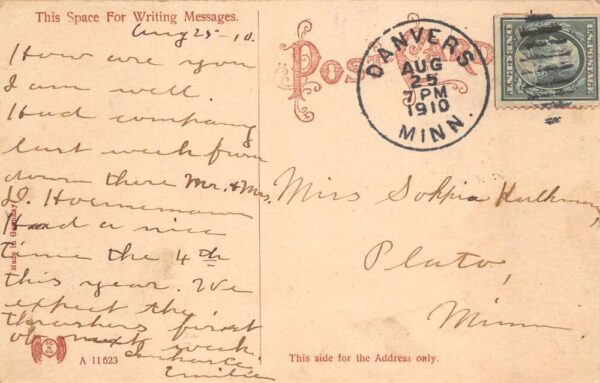 This Space For Writing Messages.
Aug 25-10.
How are you
I am well
Had company
last week from
down there Mr. & Mrs.
Had a nice
time the 4th
this year. We
expect the
thrashers first
of next week.
Emilie
Made in Germany
A 11623
POST CARD
DANVERS
AUG
25
7 PM
1910
MINN.
U.S. POSTAGE
ONE CENT
Miss Sophia
Plato,
Minn.
This side for the Address only.